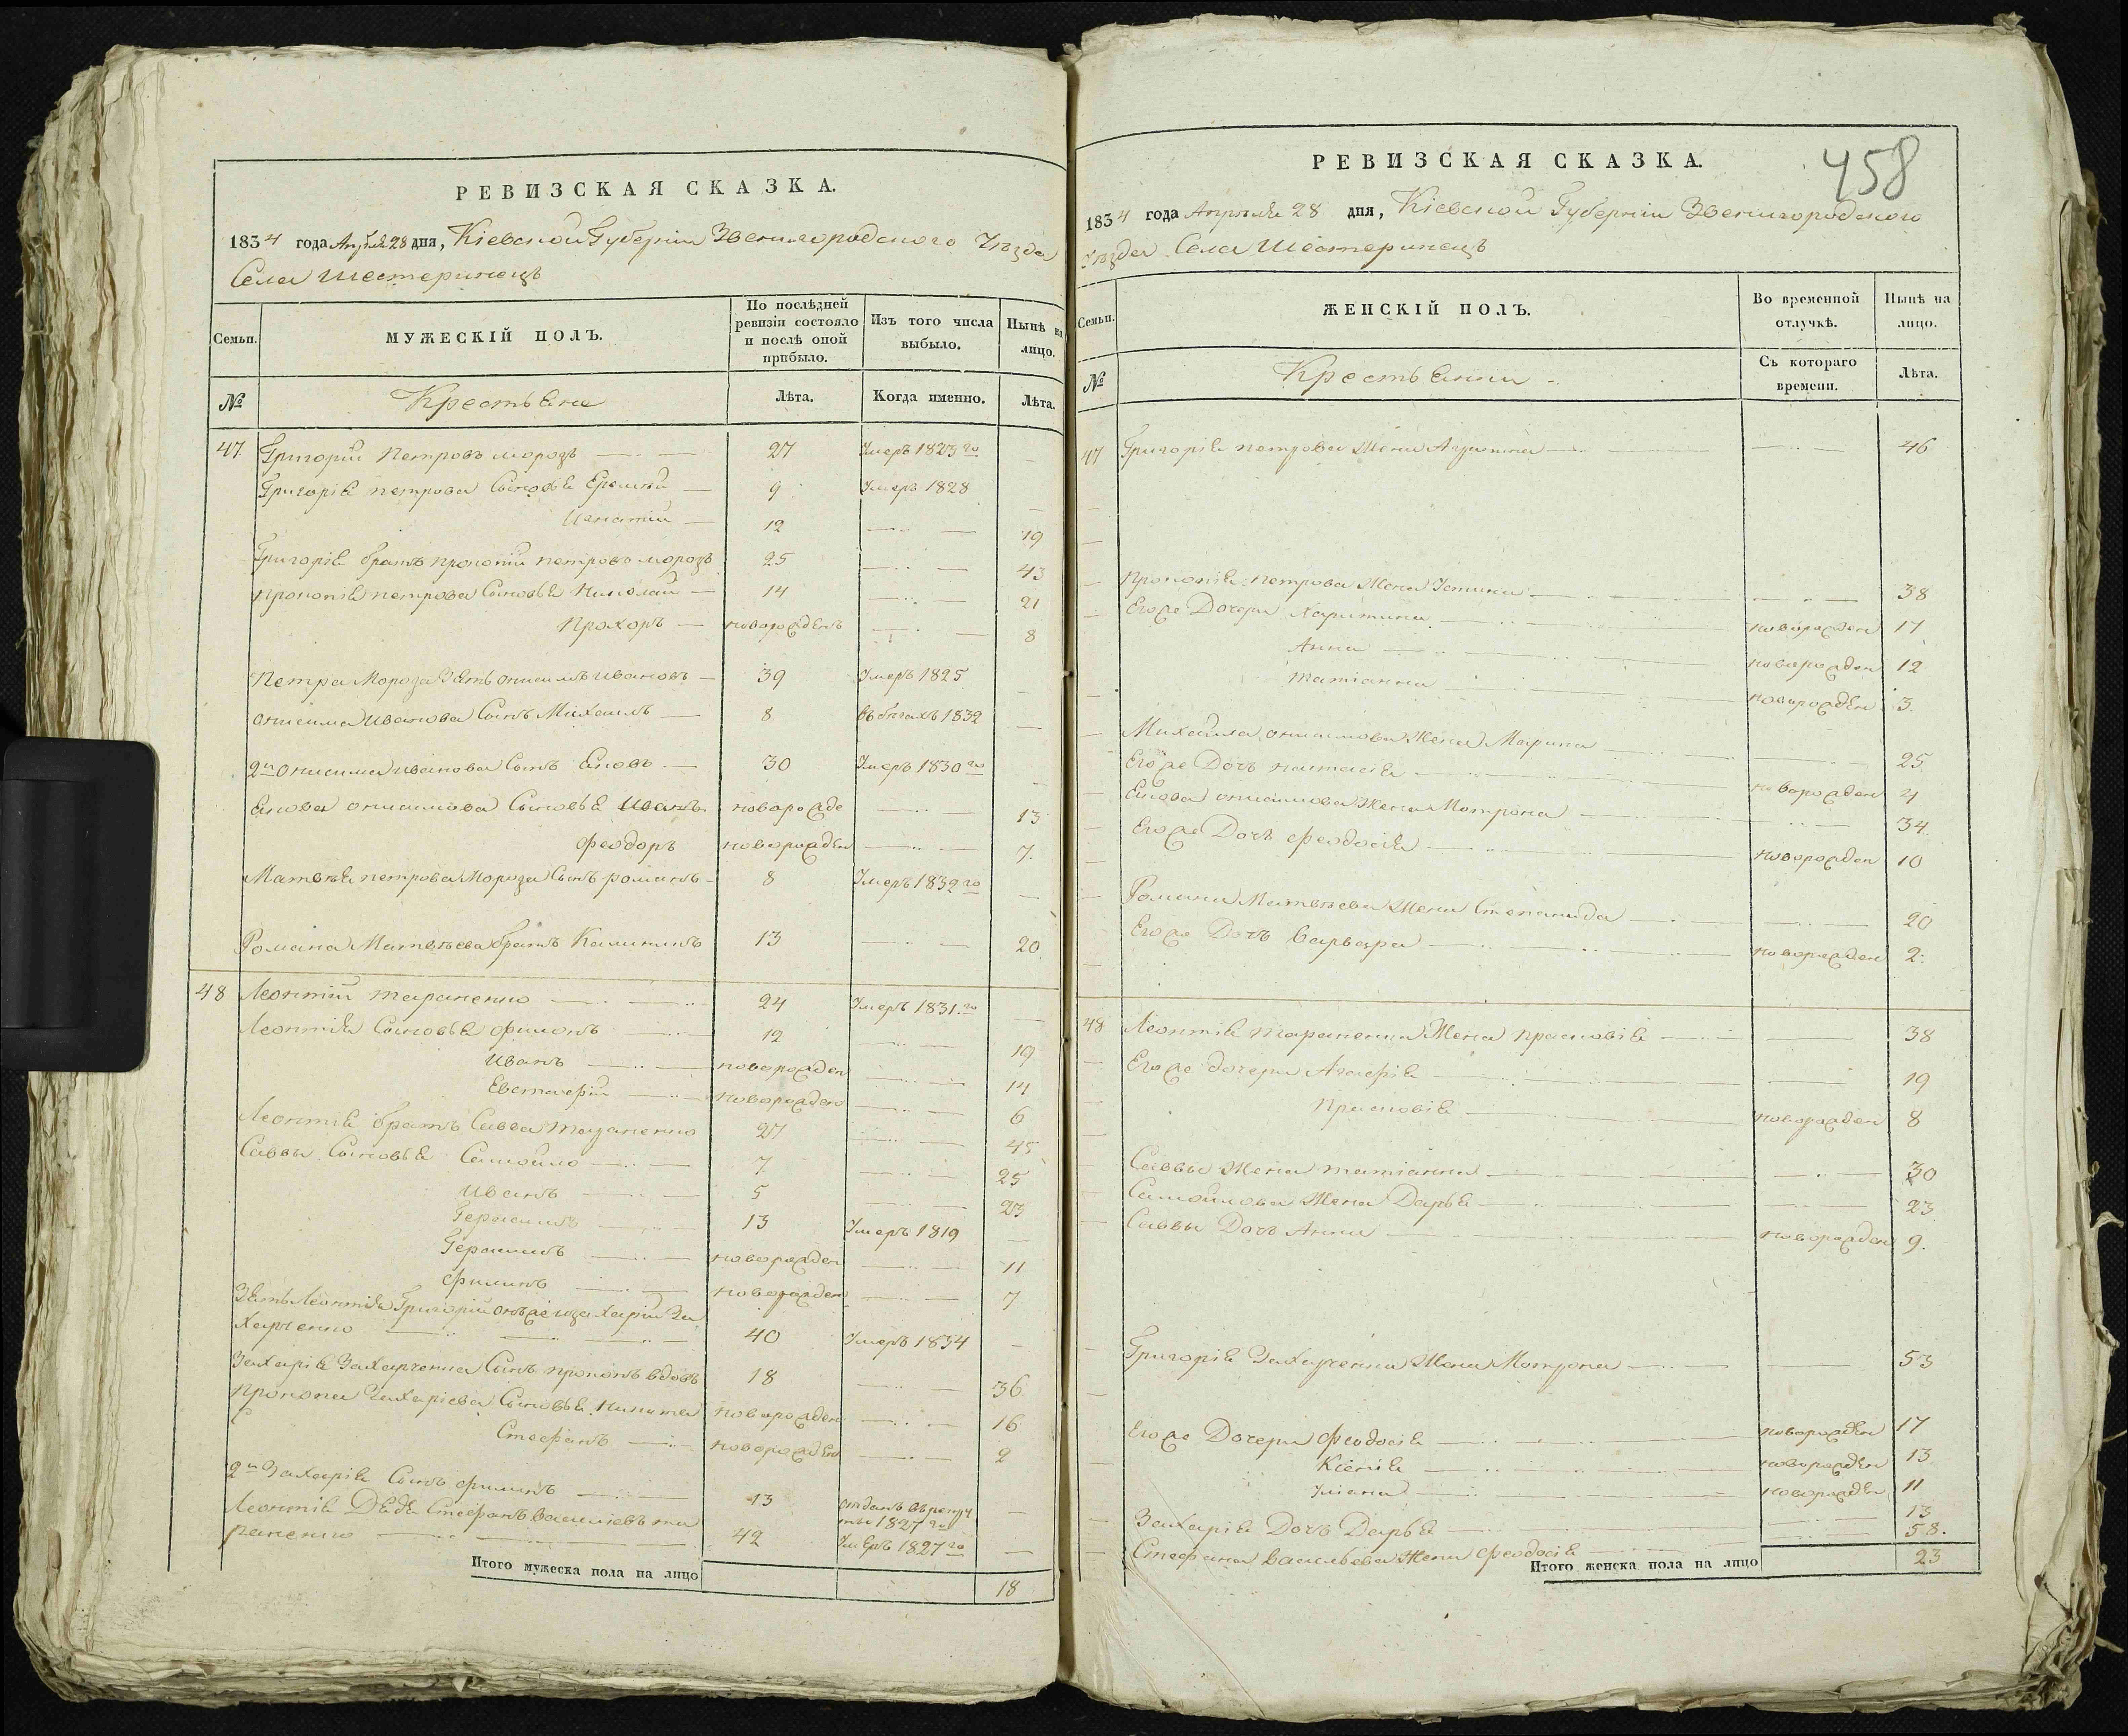 РЕВИЗСКАЯ СКАЗКА.
1834 года Апреля 28 дня, Кіевской Губерніи Звенигородского Уѣзда
Села Шестеринецъ
Семьи.
МУЖЕСКІЙ ПОЛЪ.
По послѣдней ревизіи состояло и послѣ оной прибыло.
Изъ того числа выбыло.
Нынѣ на лицо.
№
Крестьяне
Лѣта.
Когда именно.
Лѣта.
47 Григорій Петровъ морозъ — 27 Умеръ 1823го —
Григорія петрова Сыновья Еремѣй — 9 Умеръ 1828 —
Игнатій — 12 — 19
Григорія братъ прокопій петровъ морозъ 25 — 43
прокопія петрова Сыновья Николай — 14 — 21
Прохоръ — новорожденъ — 8
Петра Мороза Зять онисимъ Ивановъ — 39 Умеръ 1825 —
онисима Иванова Сынъ Михаилъ — 8 въ бегахъ 1832 —
2й онисима Иванова Сынъ Яковъ — 30 Умеръ 1830го —
Якова онисимова Сыновья Иванъ новорожде — 13
Феодоръ новорожден — 7.
Матвѣя петрова Мороза Сынъ романъ — 8 Умеръ 1832го —
Романа Матвѣева братъ Калиникъ 13 — 20.
48 Леонтій тараненко — 24 Умеръ 1831.го —
Леонтія Сыновья филонъ — 12 — 19
Иванъ — новорожден — 14
Евстафій — новорожден — 6
Леонтія братъ Савва тараненко 27 — 45
Саввы Сыновья Самойло — 7 — 25
Иванъ — 5 — 23
Герасимъ — 13 Умеръ 1819 —
Герасимъ — новорожден — 11
филипъ — новорожден — 7
Зять Леонтія Григорій онъ же и захарій За
харченко — 40 Умеръ 1834 —
Захарія Захарченка Сынъ прокопъ вдовъ 18 — 36.
прокопа Захаріева Сыновья Никита новорожден — 16
Стефанъ — новорожден — 2
2й Захарія Сынъ филипъ — 13 отданъ въ рекру
ты 1827го —
Леонтія Дядя Стефанъ василіевъ та
раненко — 42 Умеръ 1827го —
Итого мужеска пола на лицо 18
458
РЕВИЗСКАЯ СКАЗКА.
1834 года Апреля 28 дня, Кіевской Губерніи Звенигородского
Уѣзда Села Шестеринецъ
Семьи.
ЖЕНСКІЙ ПОЛЪ.
Во временной отлучкѣ.
Нынѣ на лицо.
№
Крестьянки
Съ котораго времени.
Лѣта.
47 Григорія петрова Жена — 46
Прокопія петрова Жена Устина — 38
Его же Дочери Харитина — новорожден 17
Анна — новорожден 12
татіанна — новорожден 3.
Михайла онисимова Жена Марина — 25
Его же Дочь настасія — новорожден 4
Якова онисимова Жена Мотрона — 34.
Его же Дочь феодосія — новорожден 10
Романа Матвѣева Жена Степанида — 20
Его же Дочь Варвара — новорожден 2.
48 Леонтія тараненка Жена прасковія — 38
Его же дочери Агафія — 19
Прасковія — новорожден 8
Саввы Жена татіанна — 30
Самойлова Жена Дарья — 23
Саввы Дочь Анна — новорожден 9.
Григорія Захарченка Жена Мотрона — 53
Его же Дочери Феодосія — новорожден 17
Ксенія — новорожден 13
Уліана — новорожден 11
Захарія Дочь Дарья — 13
Стефана васильева Жена феодосія — 58.
Итого женска пола на лицо 23